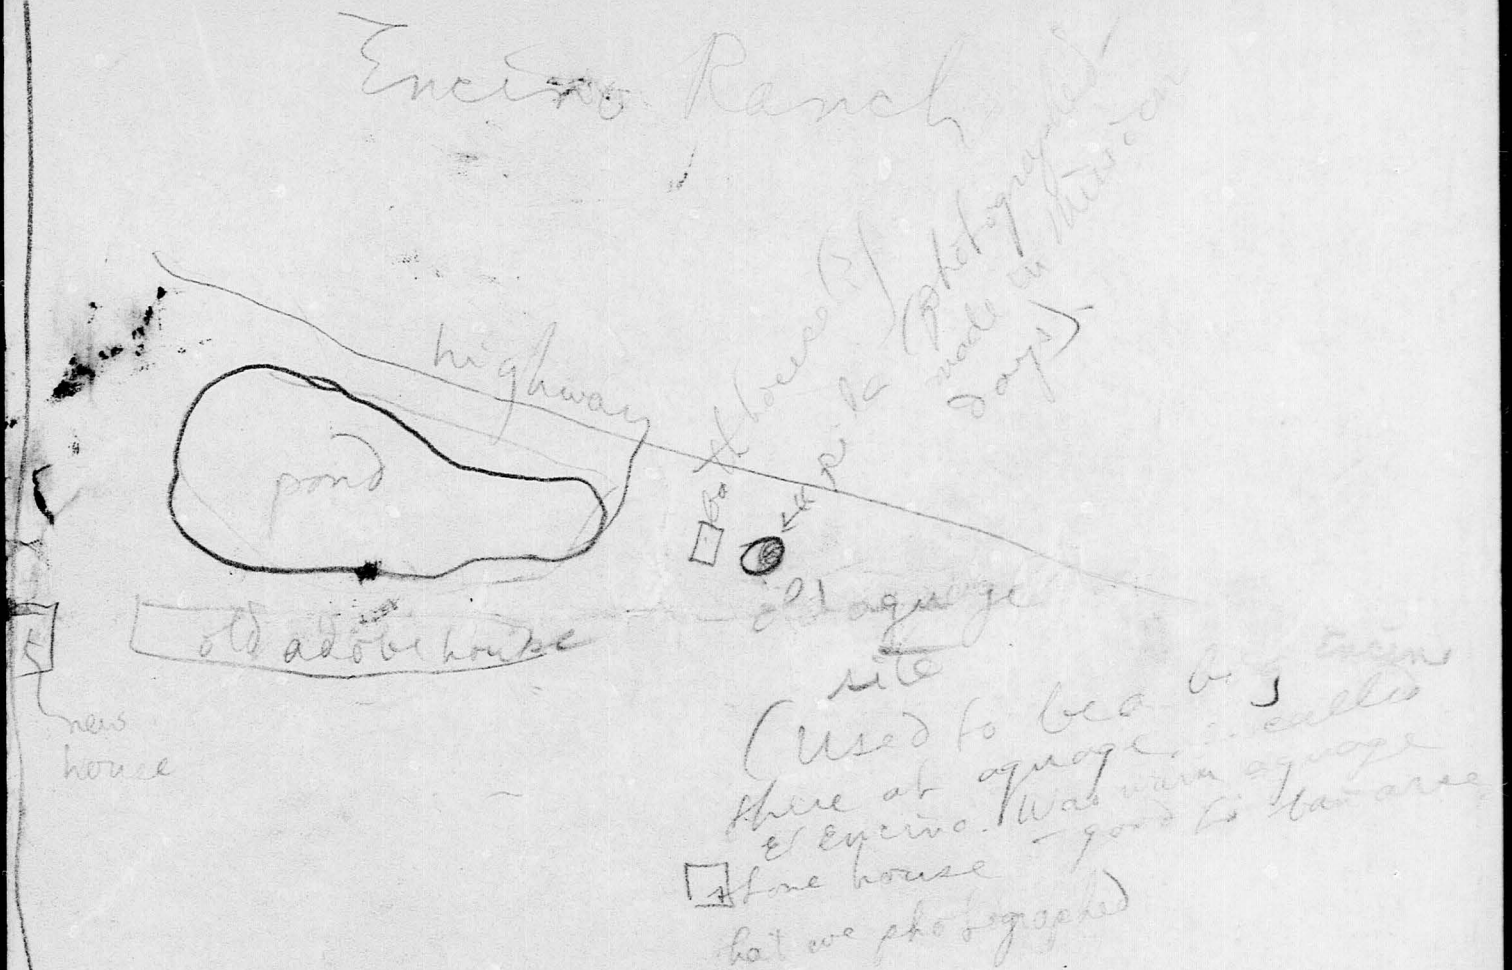 Encino Ranch
highway
pond
bath house (?)
pila (photographed
made in Mission
days)
old aguage
site
old adobe house
new
house
(Used to be a big encino
there at aguage, called
El Encino. Was warm aguage
– good to bañarse
stone house
that we photographed